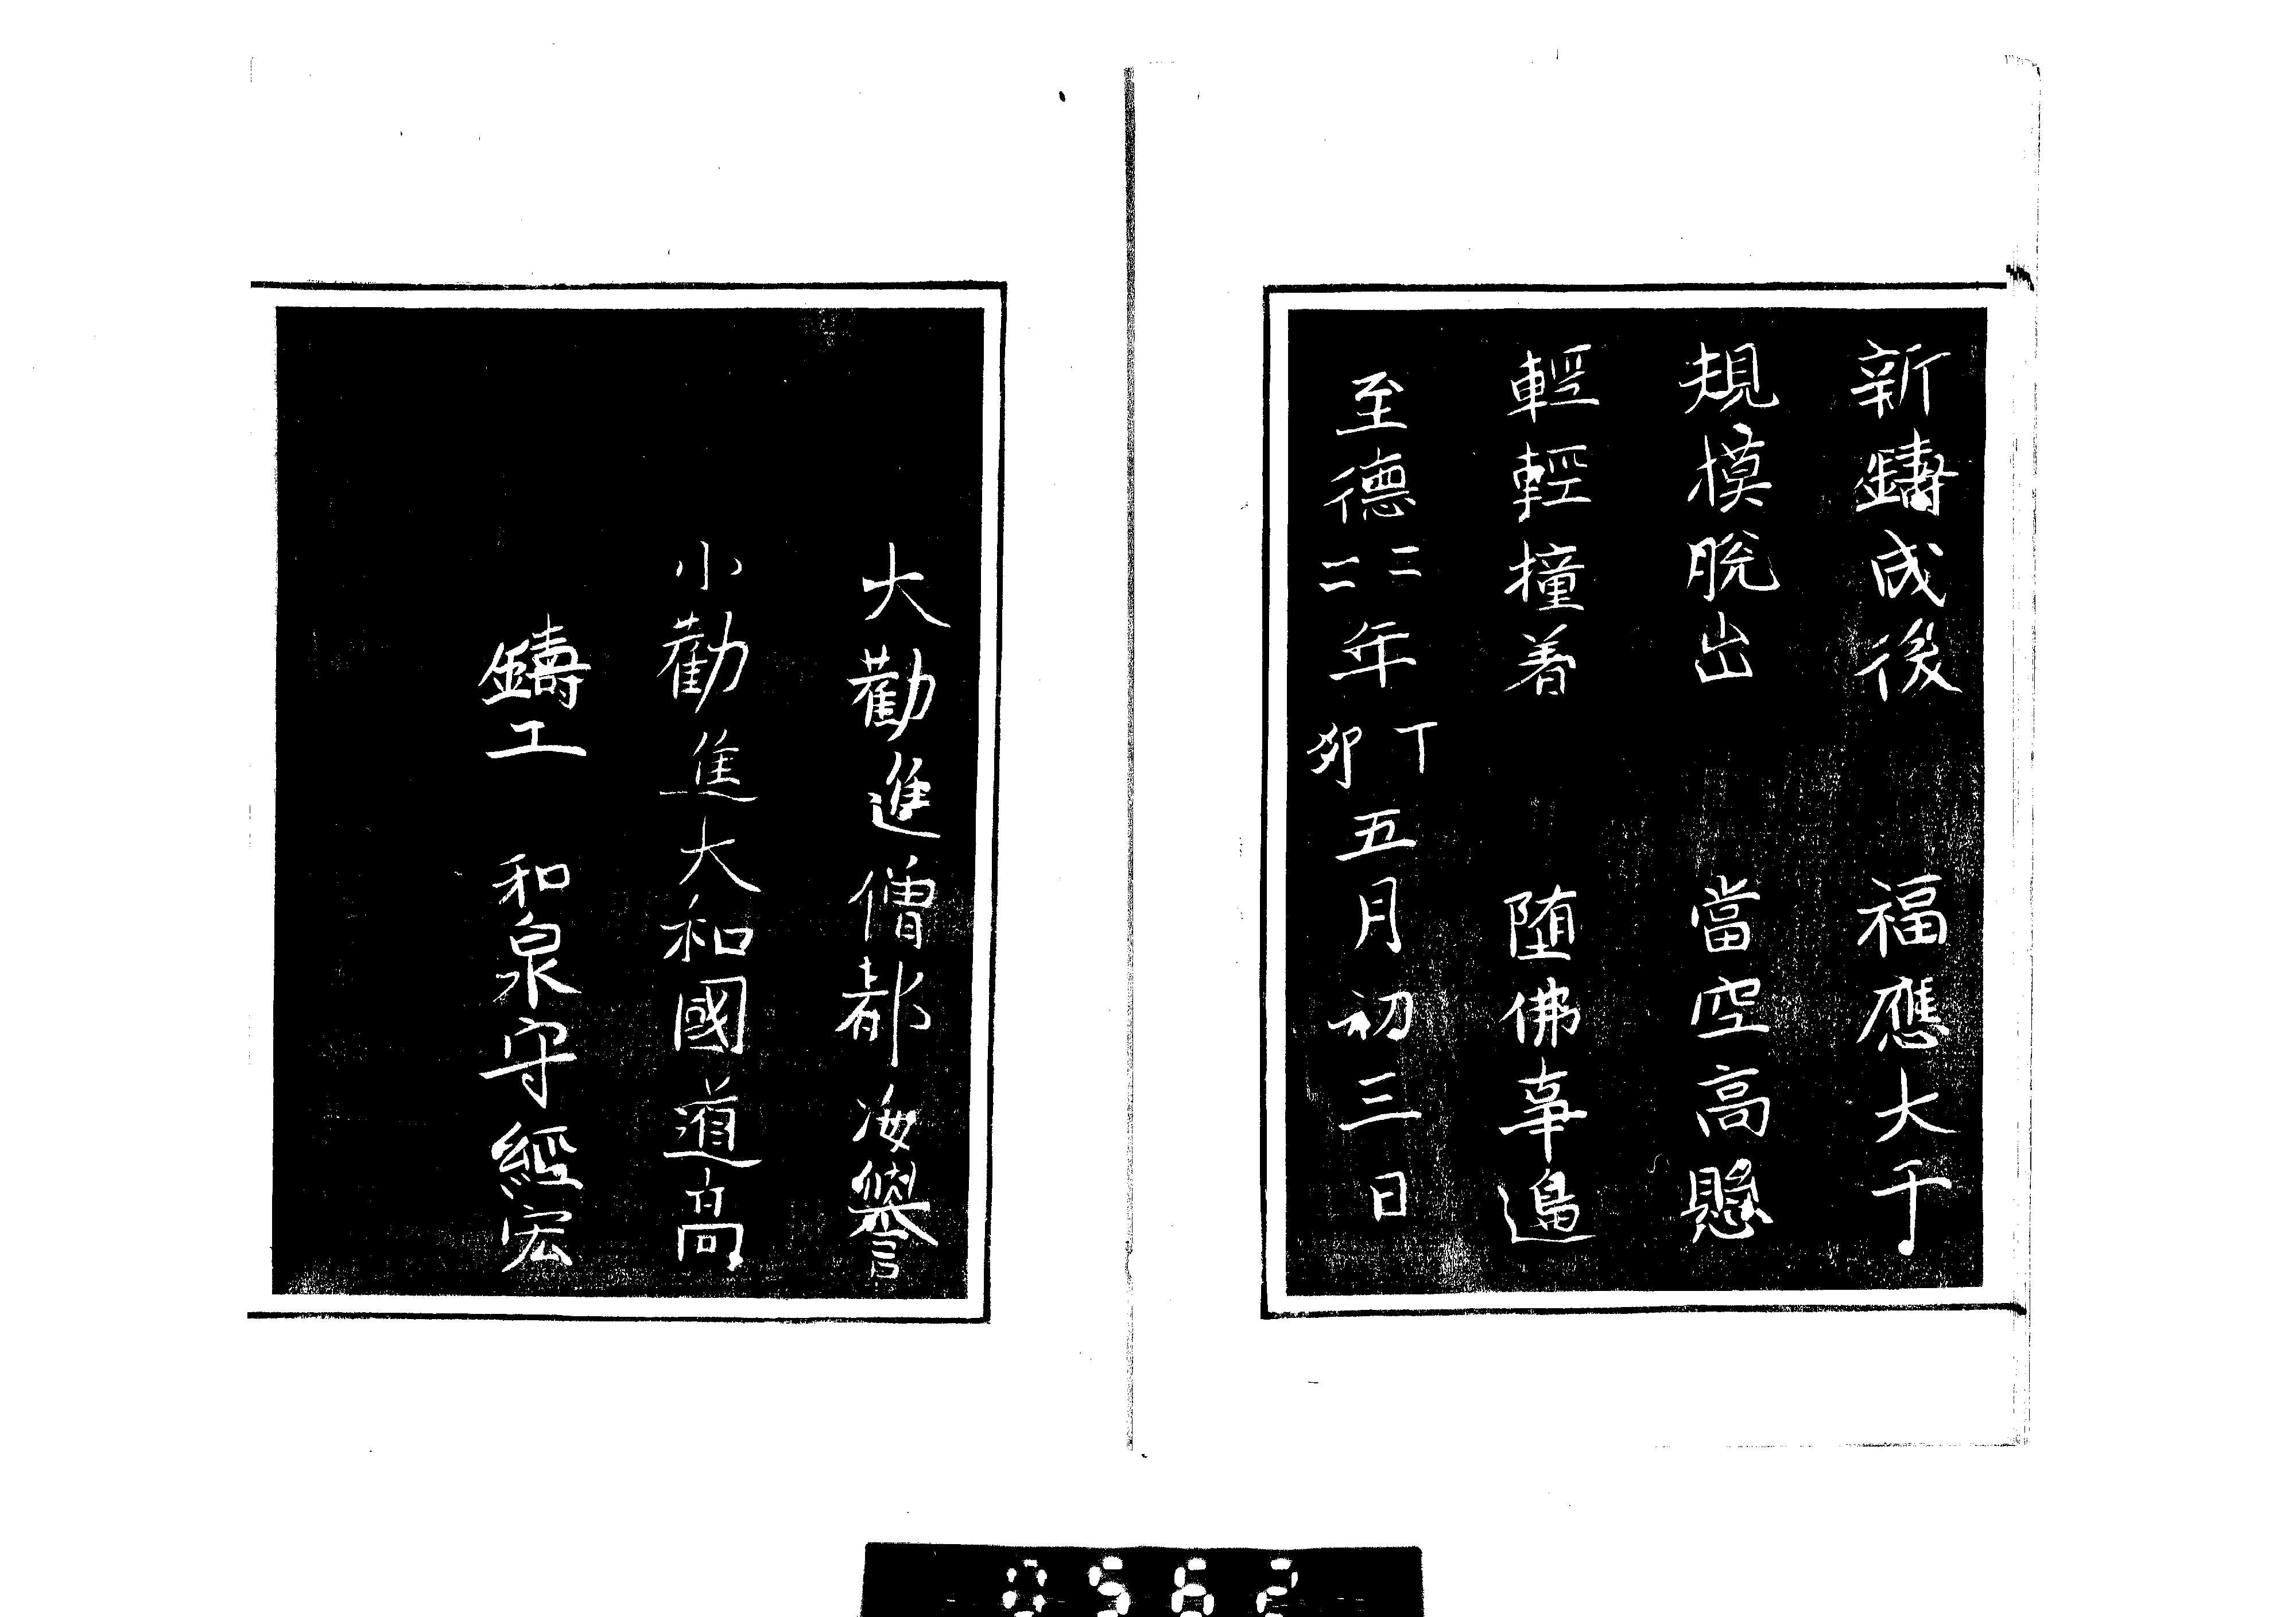 新鑄成後 福應大千
規模脱出 當空高懸
輕輕撞着 堕佛事邉
至德二二年丁卯五月初三日
大勸進僧都海譽
小勸進大和國道高
鑄工 和泉守經宏